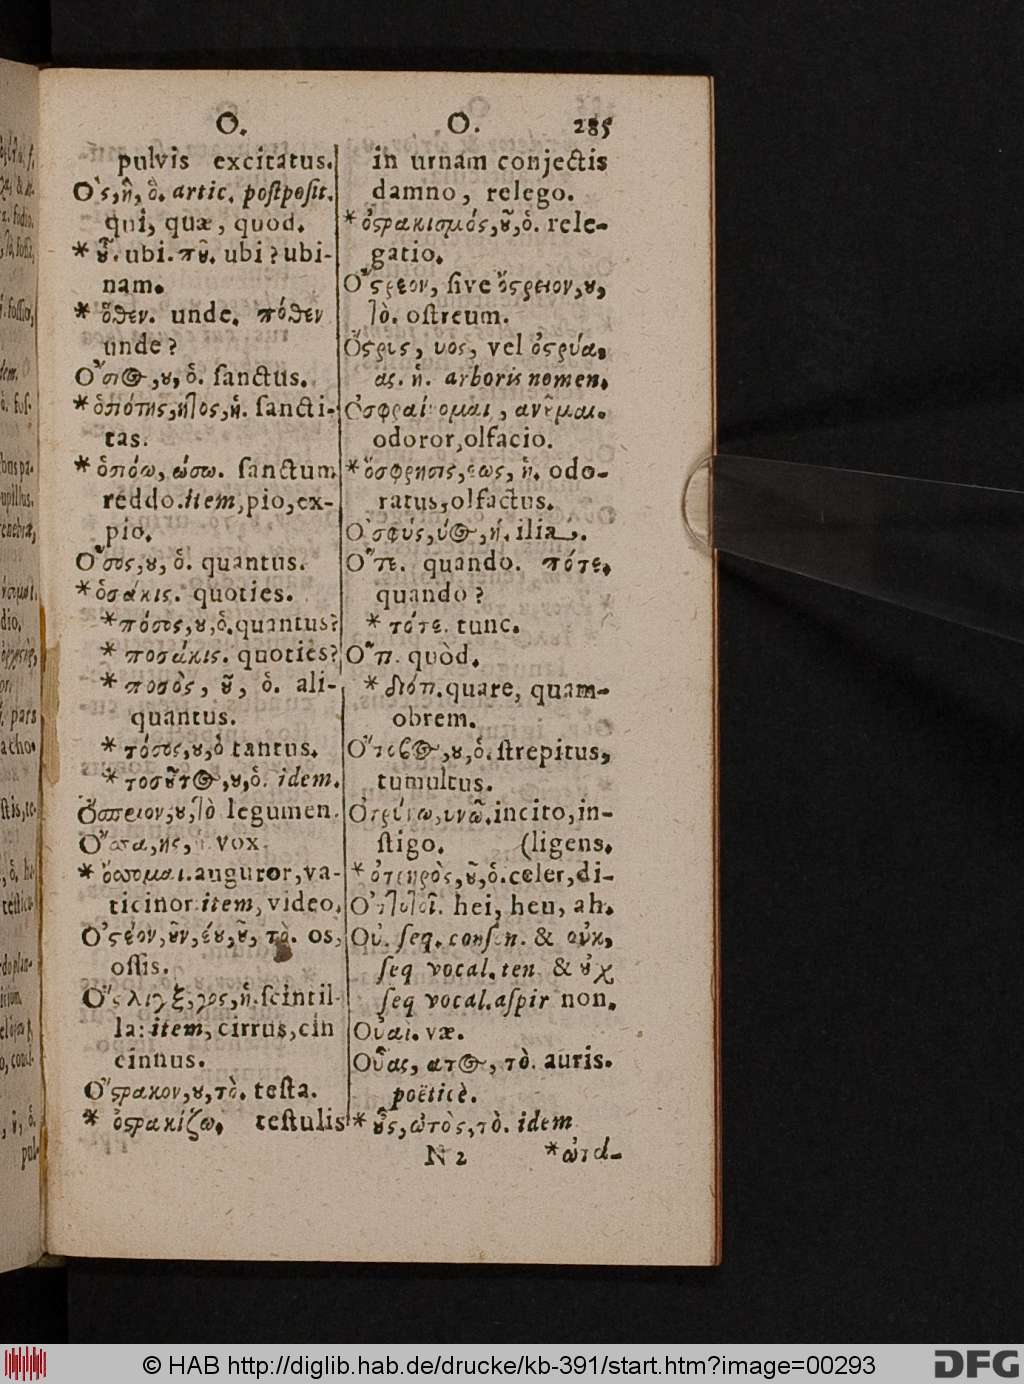 O.
pulvis excitatus.
Ὃς, ἣ, ὃ. artic. poſtpoſit.
qui, quæ, quod.
* οὗ. ubi. ποῦ. ubi? ubi-
nam.
* ὅθεν. unde. πόθεν
unde?
Ὅσιος, ου, ὁ. ſanctus.
* ὁσιότης, ητος, ἡ. ſancti-
tas.
* ὁσιόω, ώσω. ſanctum
reddo. item, pio, ex-
pio.
Ὅσος, ου, ὁ. quantus.
* ὁσάκις. quoties.
* πόσος, ου, ὁ. quantus?
* ποσάκις. quoties?
* ποσὸς, οῦ, ὁ. ali-
quantus.
* τόσος, ου, ὁ tantus.
* τοσοῦτος, ου, ὁ. idem.
Ὄσπριον, ου, τὸ legumen.
Ὄσσα, ης, ἡ. vox.
* ὄσσομαι. auguror, va-
ticinor: item, video.
Ὀστέον, οῦν, έου, οῦ, τὸ. os,
oſſis.
Ὄστλιγξ, γγος, ἡ. ſcintil-
la: item, cirrus, cin
cinnus.
Ὄστρακον, ου, τὸ. teſta.
* ὀστρακίζω. teſtulis
O. 285
in urnam conjectis
damno, relego.
* ὀστρακισμός, οῦ, ὁ. rele-
gatio.
Ὄστρεον, ſive ὄστρειον, ου,
τὸ. oſtreum.
Ὄστρις, υος, vel ὀστρύα,
ας. ἡ. arboris nomen.
Ὀσφραίνομαι, ανοῦμαι.
odoror, olfacio.
* ὄσφρησις, εως, ἡ. odo-
ratus, olfactus.
Ὀσφύς, ύος, ἡ. ilia.
Ὅτε. quando. πότε.
quando?
* τότε. tunc.
Ὅτι. quòd.
* διότι. quare, quam-
obrem.
Ὄτοβος, ου, ὁ. ſtrepitus,
tumultus.
Ὀτρύνω, υνῶ. incito, in-
ſtigo. (ligens.
* ὀτρηρὸς, οῦ, ὁ. celer, di-
Ὀτοτοῖ. hei, heu, ah.
Οὐ. ſeq. conſon. & οὐκ,
ſeq vocal. ten & οὐχ
ſeq vocal. aſpir non.
Οὐαί. væ.
Οὖας, ατος, τὸ. auris.
poëticè.
* οὖς, ὠτὸς, τὸ. idem
N 2 * ὠτά-
© HAB http://diglib.hab.de/drucke/kb-391/start.htm?image=00293
DFG